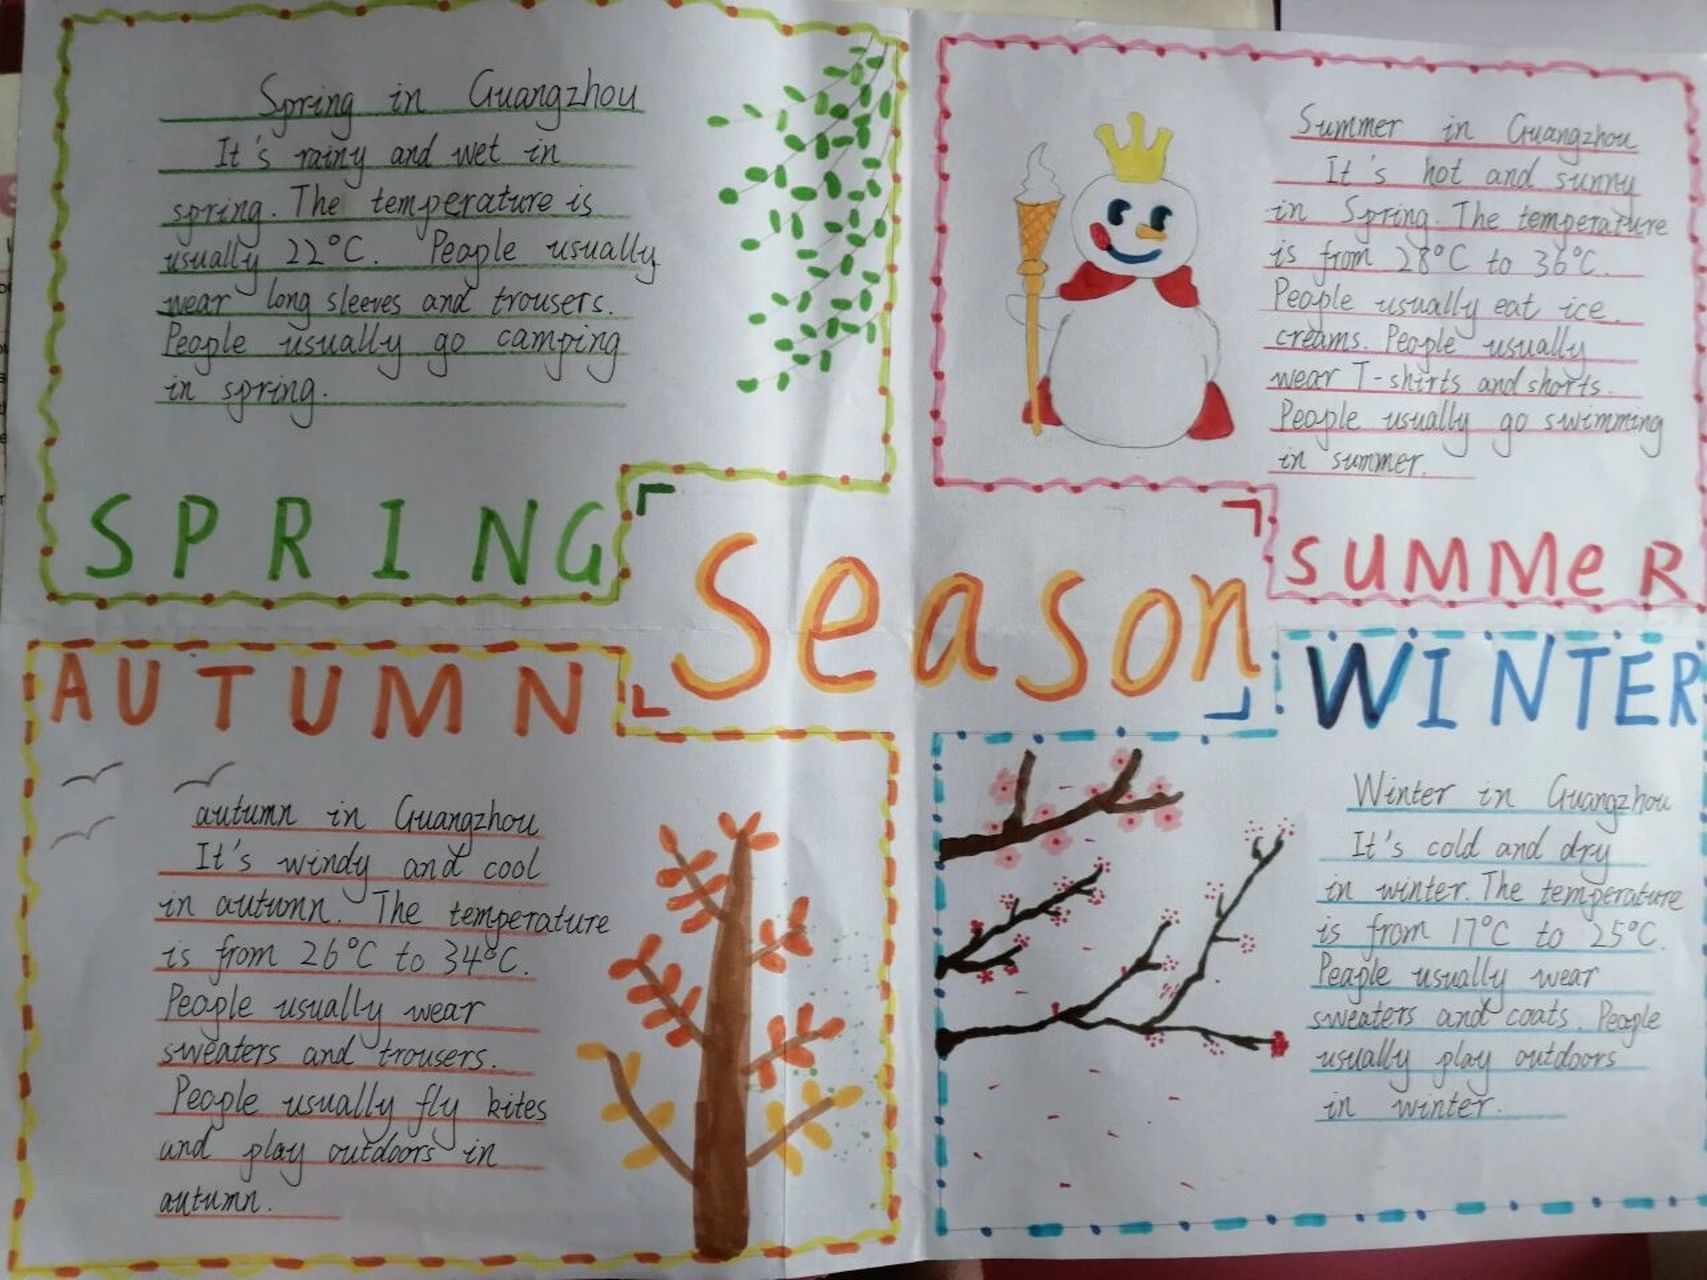 Spring in Guangzhou
It's rainy and wet in
spring. The temperature is
usually 22°C. People usually
wear long sleeves and trousers.
People usually go camping
in spring.
SPRING
Summer in Guangzhou
It's hot and sunny
in Spring. The temperature
is from 28°C to 36°C.
People usually eat ice
creams. People usually
wear T-shirts and shorts.
People usually go swimming
in summer.
SUMMeR
Season
AUTUMN
autumn in Guangzhou
It's windy and cool
in autumn. The temperature
is from 26°C to 34°C.
People usually wear
sweaters and trousers.
People usually fly kites
and play outdoors in
autumn.
WINTER
Winter in Guangzhou
It's cold and dry
in winter. The temperature
is from 17°C to 25°C.
People usually wear
sweaters and coats. People
usually play outdoors
in winter.